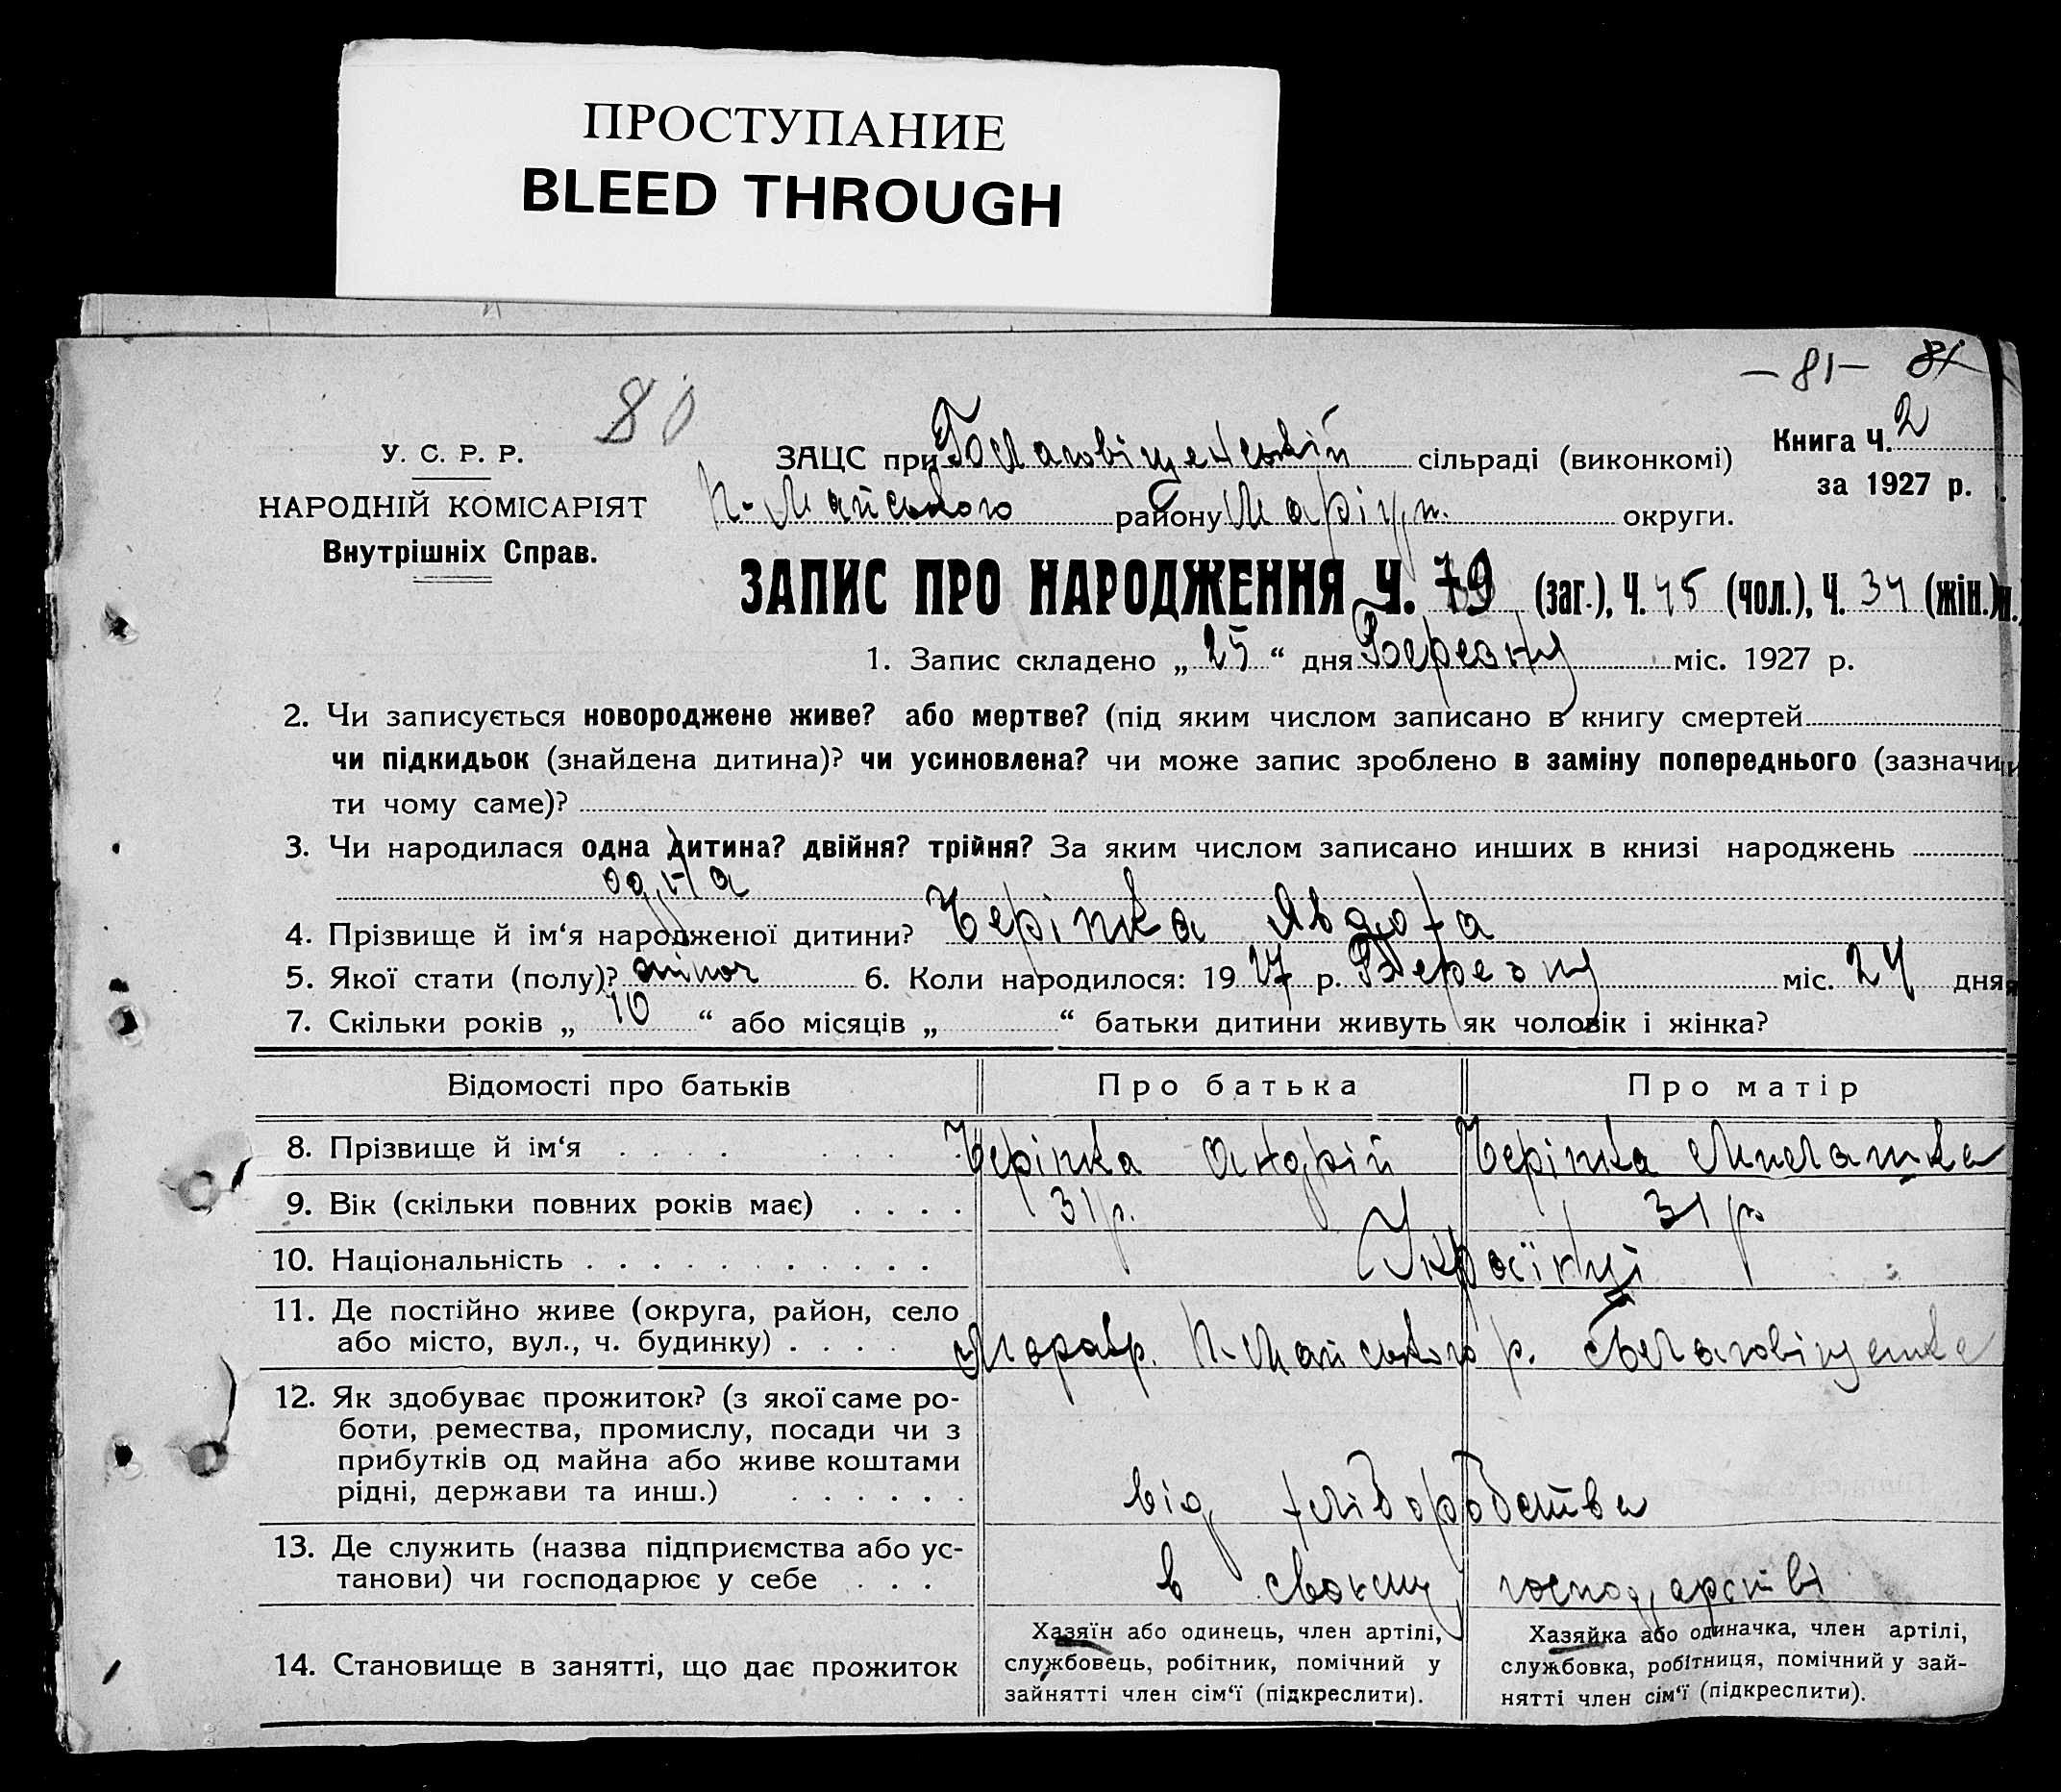 ПРОСТУПАНИЕ
BLEED THROUGH
—81— 81
80
У. С. Р. Р.
НАРОДНІЙ КОМІСАРІЯТ
Внутрішніх Справ.
ЗАЦС при Благовіщенській сільраді (виконкомі)
Книга Ч. 2
за 1927 р.
П-Майського району Маріуп. округи.
ЗАПИС ПРО НАРОДЖЕННЯ Ч. 79 (заг.), Ч. 45 (чол.), Ч. 34 (жін.)
1. Запис складено „ 25 “ дня Березну міс. 1927 р.
2. Чи записується новороджене живе? або мертве? (під яким числом записано в книгу смертей
чи підкидьок (знайдена дитина)? чи усиновлена? чи може запис зроблено в заміну попереднього (зазначи
ти чому саме)?
3. Чи народилася одна дитина? двійня? трійня? За яким числом записано инших в книзі народжень
одна
4. Прізвище й ім‘я народженої дитини? Черіпка Явдота
5. Якої стати (полу)? жіноч 6. Коли народилося: 19 27 р. Березну міс. 24 дня
7. Скільки років „ 10 “ або місяців „ “ батьки дитини живуть як чоловік і жінка?
Відомості про батьків Про батька Про матір
8. Прізвище й ім‘я Черіпка Андрій Черіпка
9. Вік (скільки повних років має) 31 р. 31 р
10. Національність Українці
11. Де постійно живе (округа, район, село
або місто, вул., ч. будинку) П-Майського р. с Благовіщенка
12. Як здобуває прожиток? (з якої саме ро-
боти, ремества, промислу, посади чи з
прибутків од майна або живе коштами
рідні, держави та инш.) від хліборобства
13. Де служить (назва підприємства або ус-
танови) чи господарює у себе в своєму господарстві
14. Становище в занятті, що дає прожиток
Хазяїн або одинець, член артілі,
службовець, робітник, помічний у
зайнятті член сім‘ї (підкреслити).
Хазяйка або одиначка, член артілі,
службовка, робітниця, помічний у зай-
нятті член сім‘ї (підкреслити).